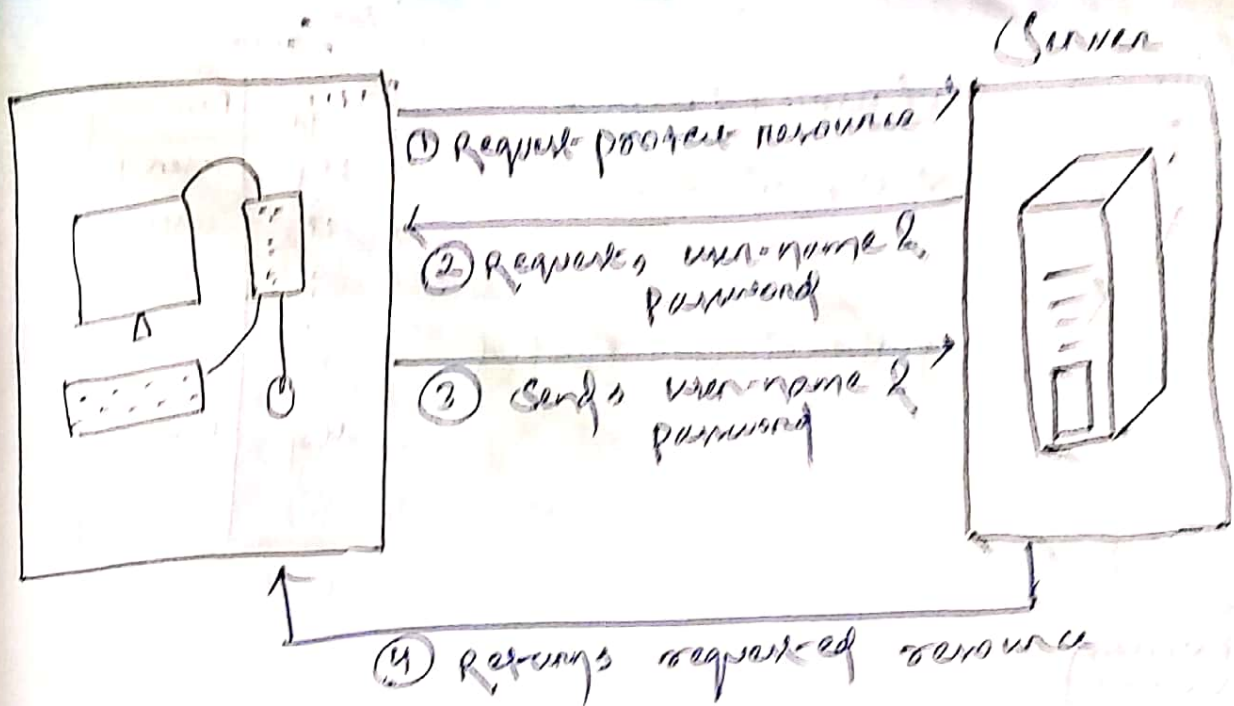 Server
① Request protect resource
② Requests user-name &
password
③ Sends user-name &
password
④ Returns requested resource